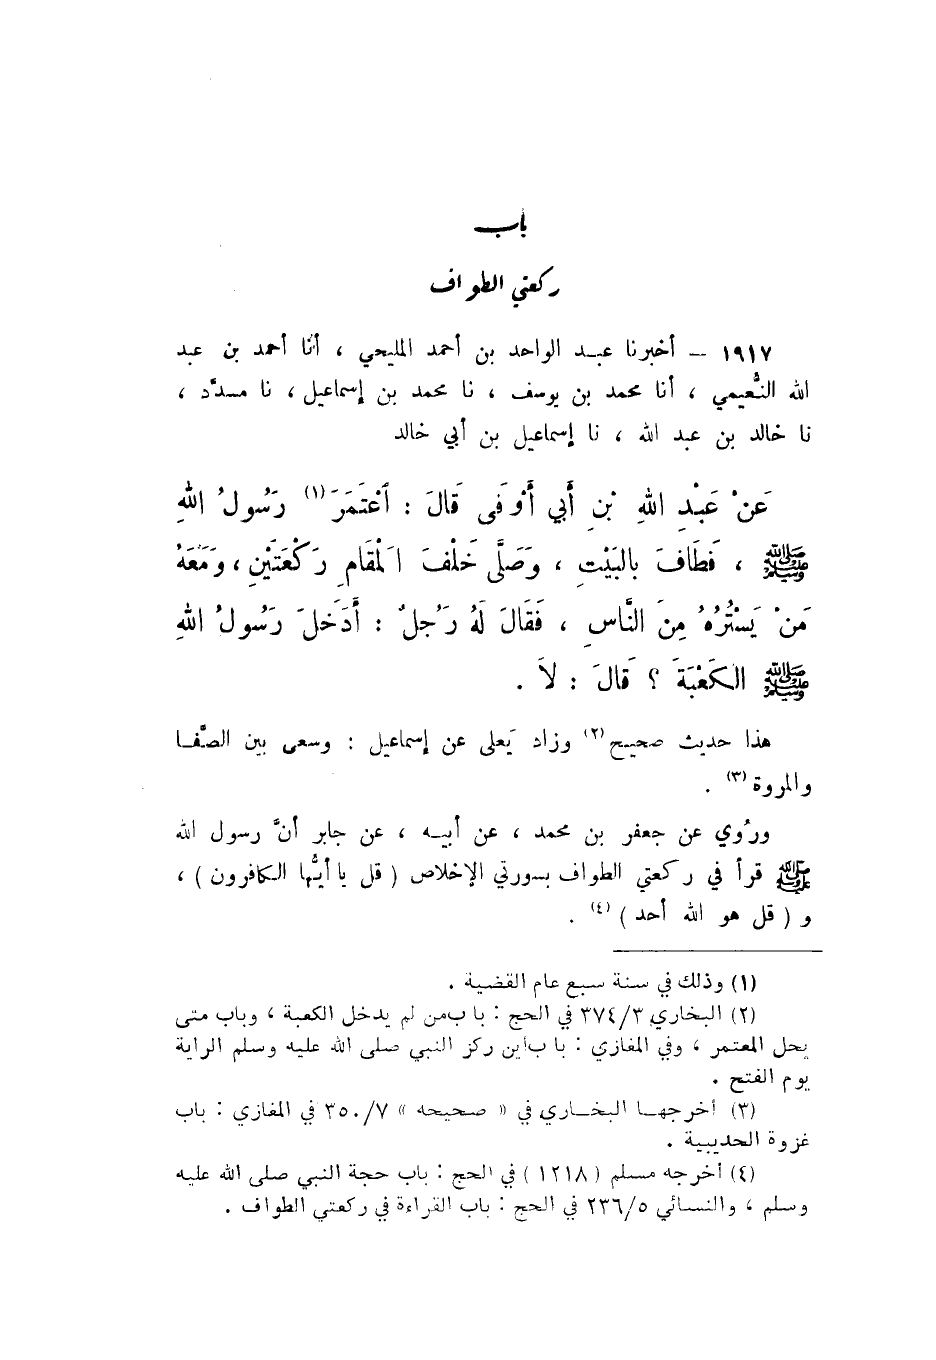 باب
ركعتي الطواف
١٩١٧ – أخبرنا عبد الواحد بن أحمد المليحي ، أنا أحمد بن عبد
الله النُّعيمي ، أنا محمد بن يوسف ، نا محمد بن إسماعيل ، نا مسدَّد ،
نا خالد بن عبد الله ، نا إسماعيل بن أبي خالد
عَنْ عَبْدِ اللهِ بْنِ أَبي أَوْفَى قَالَ : اعْتَمَرَ (١) رَسُولُ اللهِ
ﷺ ، فَطَافَ بالبَيْتِ ، وَصَلَّى خَلْفَ الْمَقَامِ رَكْعَتَيْنِ ، وَمَعَهُ
مَنْ يَسْتُرُهُ مِنَ النَّاسِ ، فَقَالَ لَهُ رَجُلٌ : أَدَخَلَ رَسُولُ اللهِ
ﷺ الكَعْبَةَ ؟ قَالَ : لاَ .
هذا حديث صحيح (٢) وزاد يَعلى عن إسماعيل : وسعى بين الصَّفا
والمروة (٣) .
ورُوي عن جعفر بن محمد ، عن أبيه ، عن جابر أنَّ رسول الله
ﷺ قرأ في ركعتي الطواف بسورتي الإخلاص ( قل يا أيُّها الكافرون ) ،
و ( قل هو الله أحد ) (٤) .
(١) وذلك في سنة سبع عام القضية .
(٢) البخاري ٣٧٤/٣ في الحج : باب من لم يدخل الكعبة ، وباب متى
يحل المعتمر ، وفي المغازي : باب أين ركز النبي صلى الله عليه وسلم الراية
يوم الفتح .
(٣) أخرجها البخاري في « صحيحه » ٣٥٠/٧ في المغازي : باب
غزوة الحديبية .
(٤) أخرجه مسلم ( ١٢١٨ ) في الحج : باب حجة النبي صلى الله عليه
وسلم ، والنسائي ٢٣٦/٥ في الحج : باب القراءة في ركعتي الطواف .